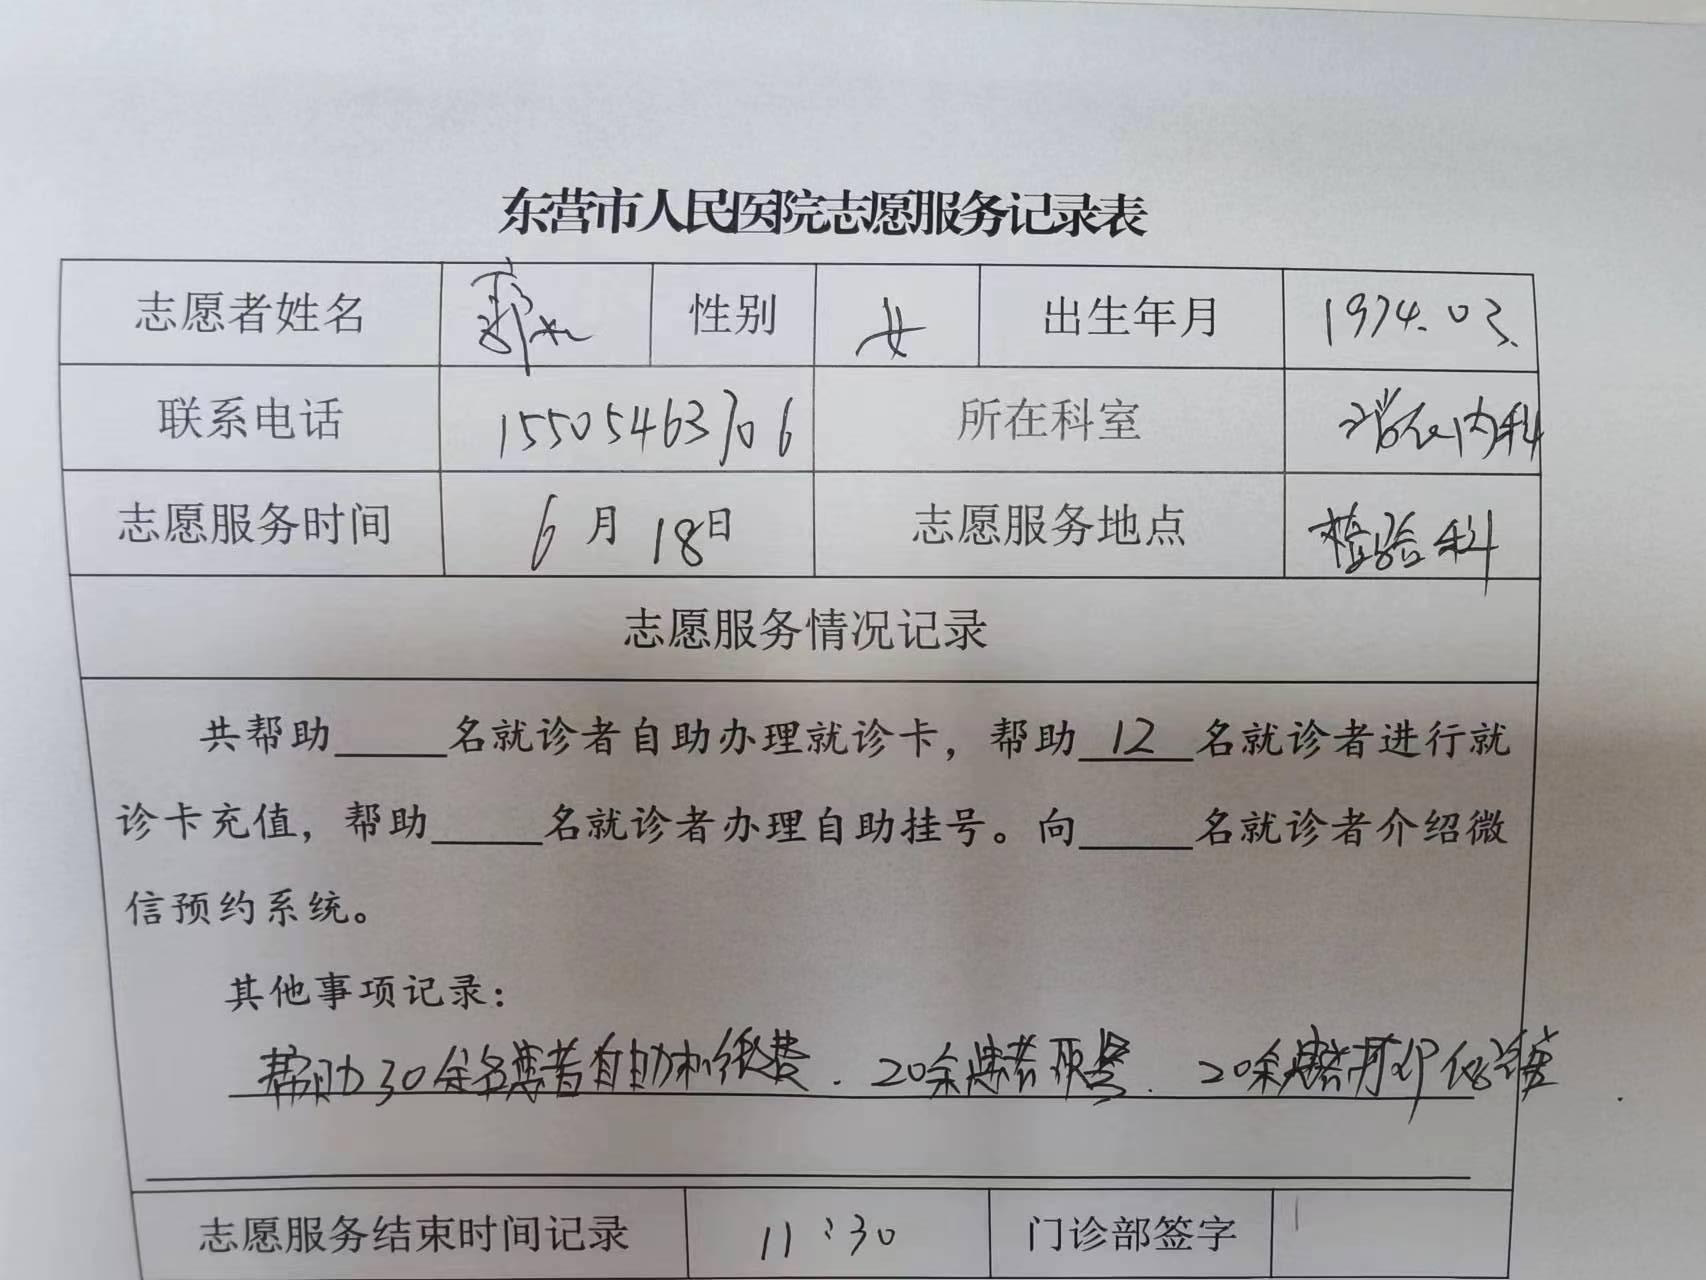 东营市人民医院志愿服务记录表
志愿者姓名 郭 性别 女 出生年月 1974.03.
联系电话 15505463706 所在科室 消化内科
志愿服务时间 6月18日 志愿服务地点 检验科
志愿服务情况记录
共帮助_____名就诊者自助办理就诊卡，帮助 12 名就诊者进行就
诊卡充值，帮助_____名就诊者办理自助挂号。向_____名就诊者介绍微
信预约系统。
其他事项记录：
帮助30余名患者自助机缴费．20余患者取号．20余患者打印化验单
志愿服务结束时间记录 11:30 门诊部签字